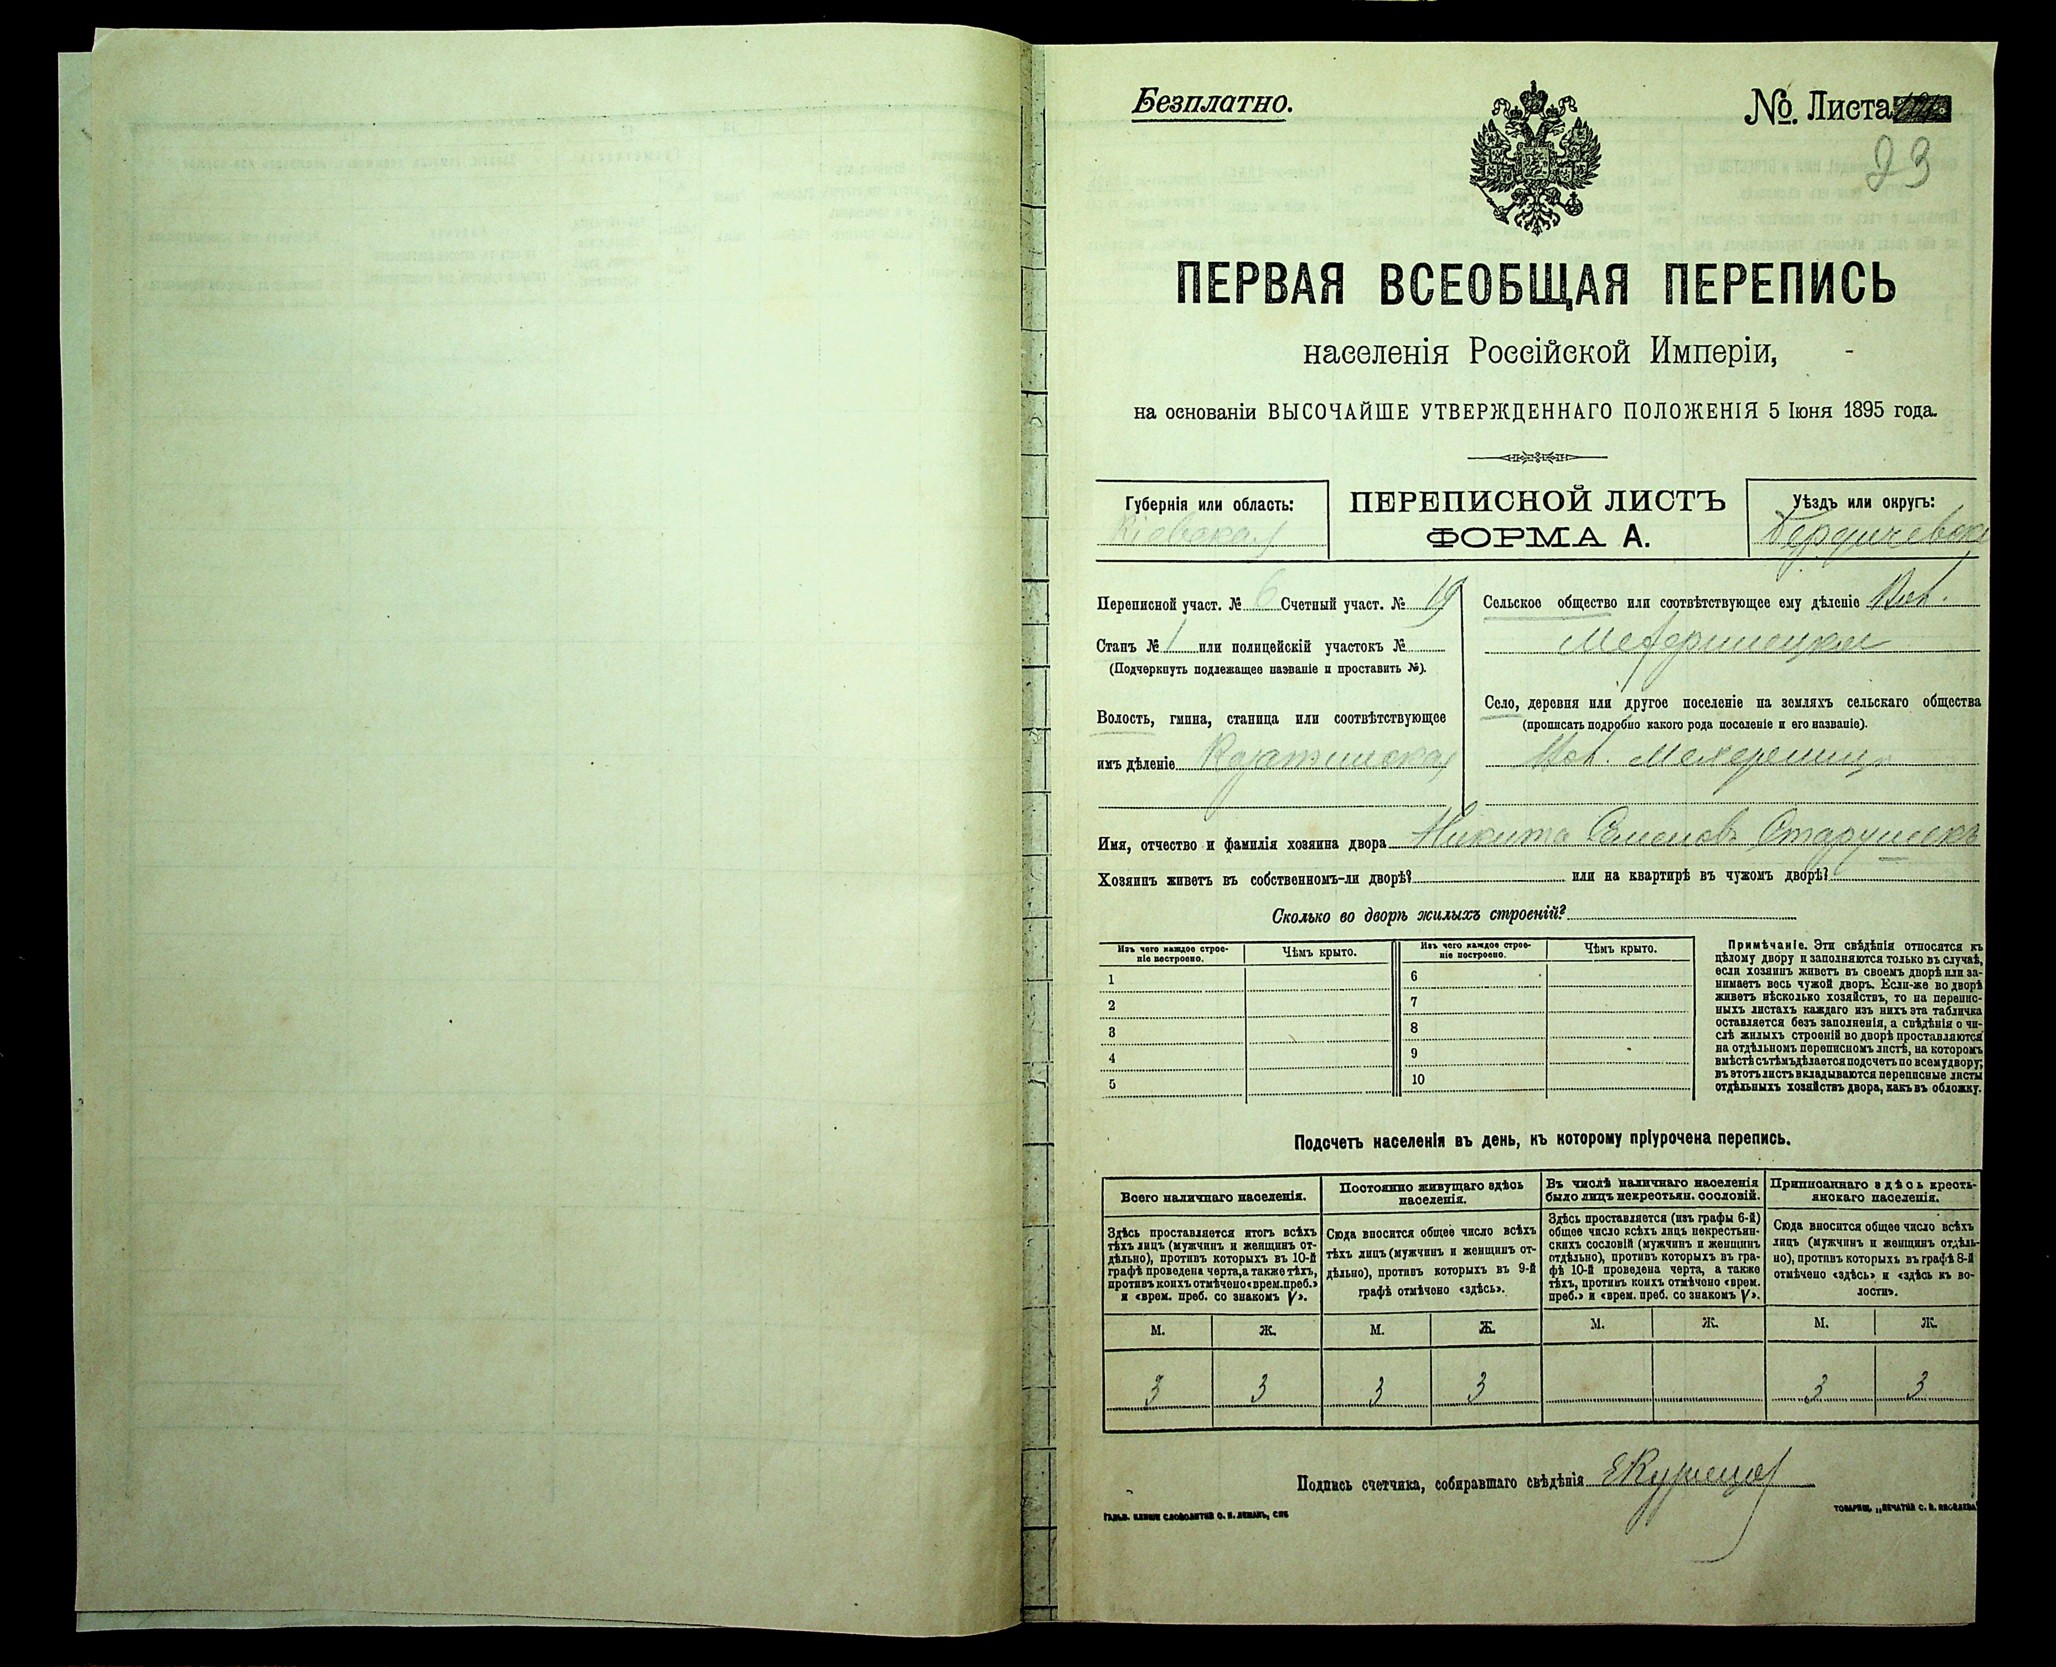 Безплатно.
№. Листа
23
ПЕРВАЯ ВСЕОБЩАЯ ПЕРЕПИСЬ
населенія Россійской Имперіи,
на основаніи ВЫСОЧАЙШЕ УТВЕРЖДЕННАГО ПОЛОЖЕНІЯ 5 Іюня 1895 года.
Губернія или область:
Кіевская
ПЕРЕПИСНОЙ ЛИСТЪ
ФОРМА А.
Уѣздъ или округъ:
Бердичевск
Переписной участ. № 6 Счетный участ. № 19
Станъ № 1 или полицейскій участокъ №
(Подчеркнуть подлежащее названіе и проставить №).
Волость, гмина, станица или соотвѣтствующее
имъ дѣленіе
Сельское общество или соотвѣтствующее ему дѣленіе
Село, деревня или другое поселеніе на земляхъ сельскаго общества
(прописать подробно какого рода поселеніе и его названіе).
Имя, отчество и фамилія хозяина двора Никита Семеновъ
Хозяинъ живетъ въ собственномъ-ли дворѣ? или на квартирѣ въ чужомъ дворѣ?
Сколько во дворѣ жилыхъ строеній?
Изъ чего каждое строе-
ніе построено.
Чѣмъ крыто.
1
2
3
4
5
Изъ чего каждое строе-
ніе построено.
Чѣмъ крыто.
6
7
8
9
10
Примѣчаніе. Эти свѣдѣнія относятся къ
цѣлому двору и заполняются только въ случаѣ,
если хозяинъ живетъ въ своемъ дворѣ или за-
нимаетъ весь чужой дворъ. Если-же во дворѣ
живетъ нѣсколько хозяйствъ, то на перепис-
ныхъ листахъ каждаго изъ нихъ эта табличка
оставляется безъ заполненія, а свѣдѣнія о чи-
слѣ жилыхъ строеній во дворѣ проставляются
на отдѣльномъ переписномъ листѣ, на которомъ
вмѣстѣ съ тѣмъ дѣлается подсчетъ по всему двору;
въ этотъ листъ вкладываются переписные листы
отдѣльныхъ хозяйствъ двора, какъ въ обложку.
Подсчетъ населенія въ день, къ которому пріурочена перепись.
Всего наличнаго населенія.
Здѣсь проставляется итогъ всѣхъ
тѣхъ лицъ (мужчинъ и женщинъ от-
дѣльно), противъ которыхъ въ 10-й
графѣ проведена черта, а также тѣхъ,
противъ коихъ отмѣчено «врем. преб.»
и «врем. преб. со знакомъ V».
Постоянно живущаго здѣсь
населенія.
Сюда вносится общее число всѣхъ
тѣхъ лицъ (мужчинъ и женщинъ от-
дѣльно), противъ которыхъ въ 9-й
графѣ отмѣчено «здѣсь».
Въ числѣ наличнаго населенія
было лицъ некрестьян. сословій.
Здѣсь проставляется (изъ графы 6-й)
общее число всѣхъ лицъ некрестьян-
скихъ сословій (мужчинъ и женщинъ
отдѣльно), противъ которыхъ въ гра-
фѣ 10-й проведена черта, а также
тѣхъ, противъ коихъ отмѣчено «врем.
преб.» и «врем. преб. со знакомъ V».
Приписаннаго здѣсь кресть-
янскаго населенія.
Сюда вносится общее число всѣхъ
лицъ (мужчинъ и женщинъ отдѣль-
но), противъ которыхъ въ графѣ 8-й
отмѣчено «здѣсь» и «здѣсь къ во-
лости».
М. Ж. М. Ж. М. Ж. М. Ж.
3 3 3 3 3 3
Подпись счетчика, собиравшаго свѣдѣнія
ГАЛЬВ. КЛИШЕ СЛОВОЛИТНИ О. И. ЛЕМАНЪ, СПБ
ТОВАРИЩ. „ПЕЧАТНЯ С. П. ЯКОВЛЕВА